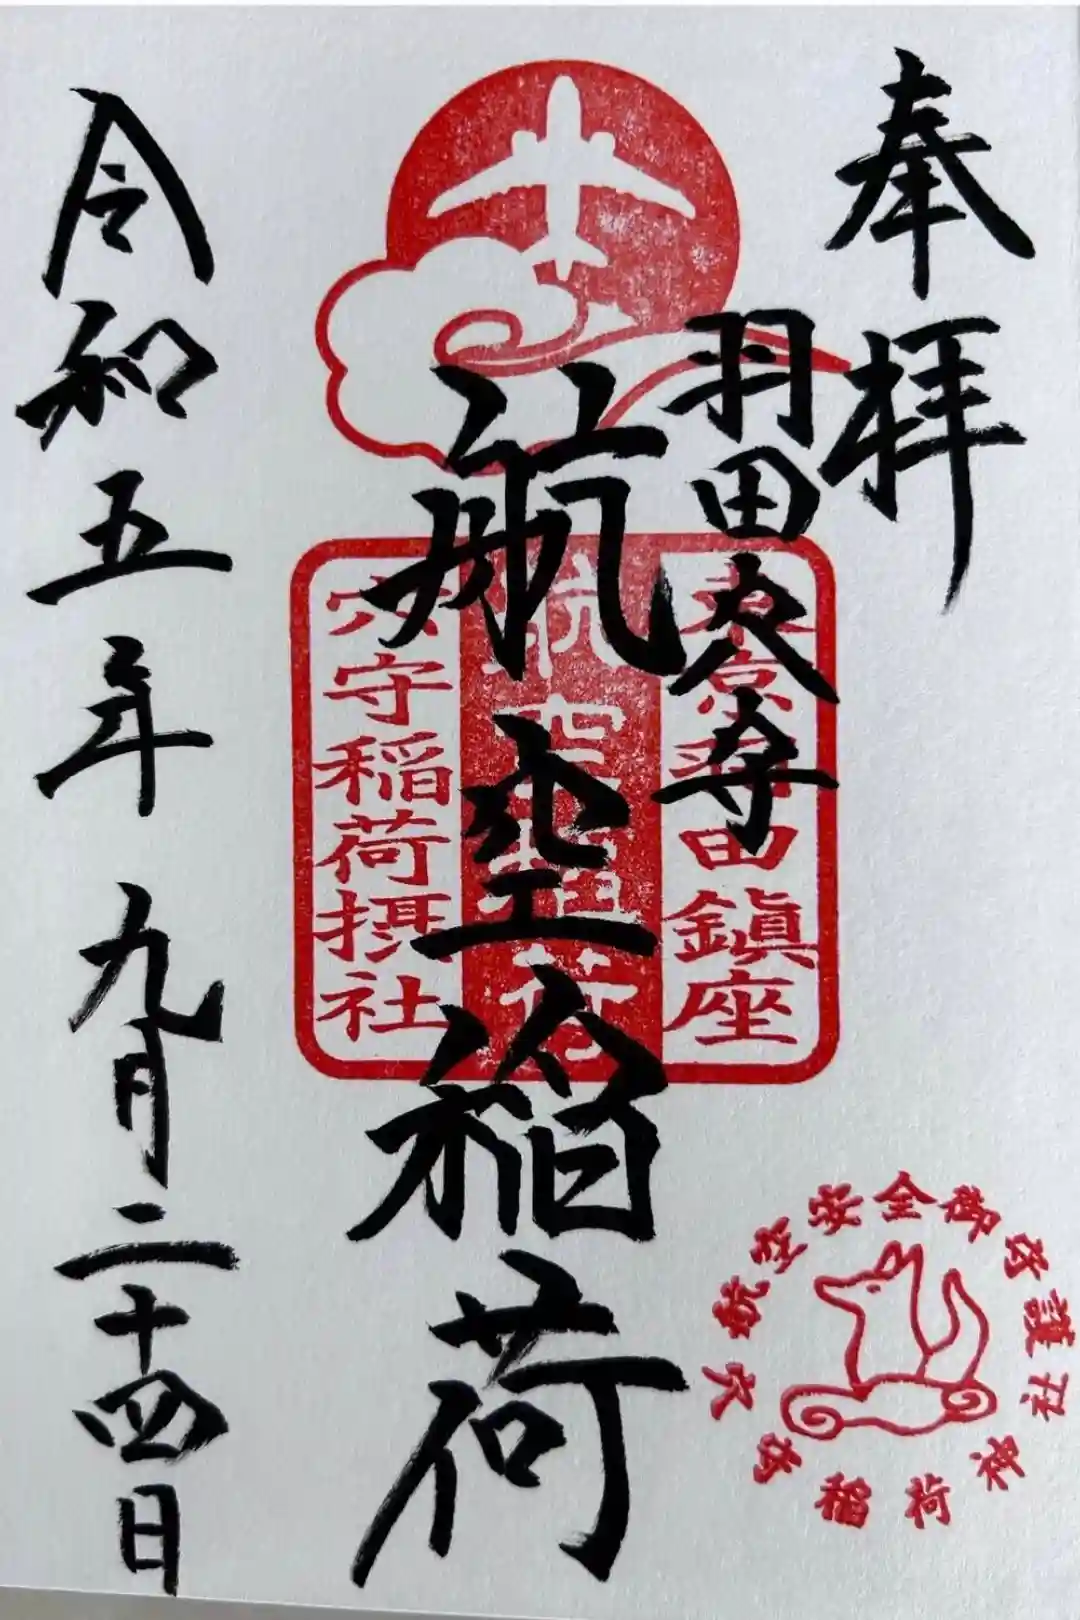 奉拝
羽田大尊
航空稲荷
令和五年九月二十四日
東京羽田鎮座
航空稲荷
穴守稲荷摂社
航空安全御守護
穴守稲荷神社